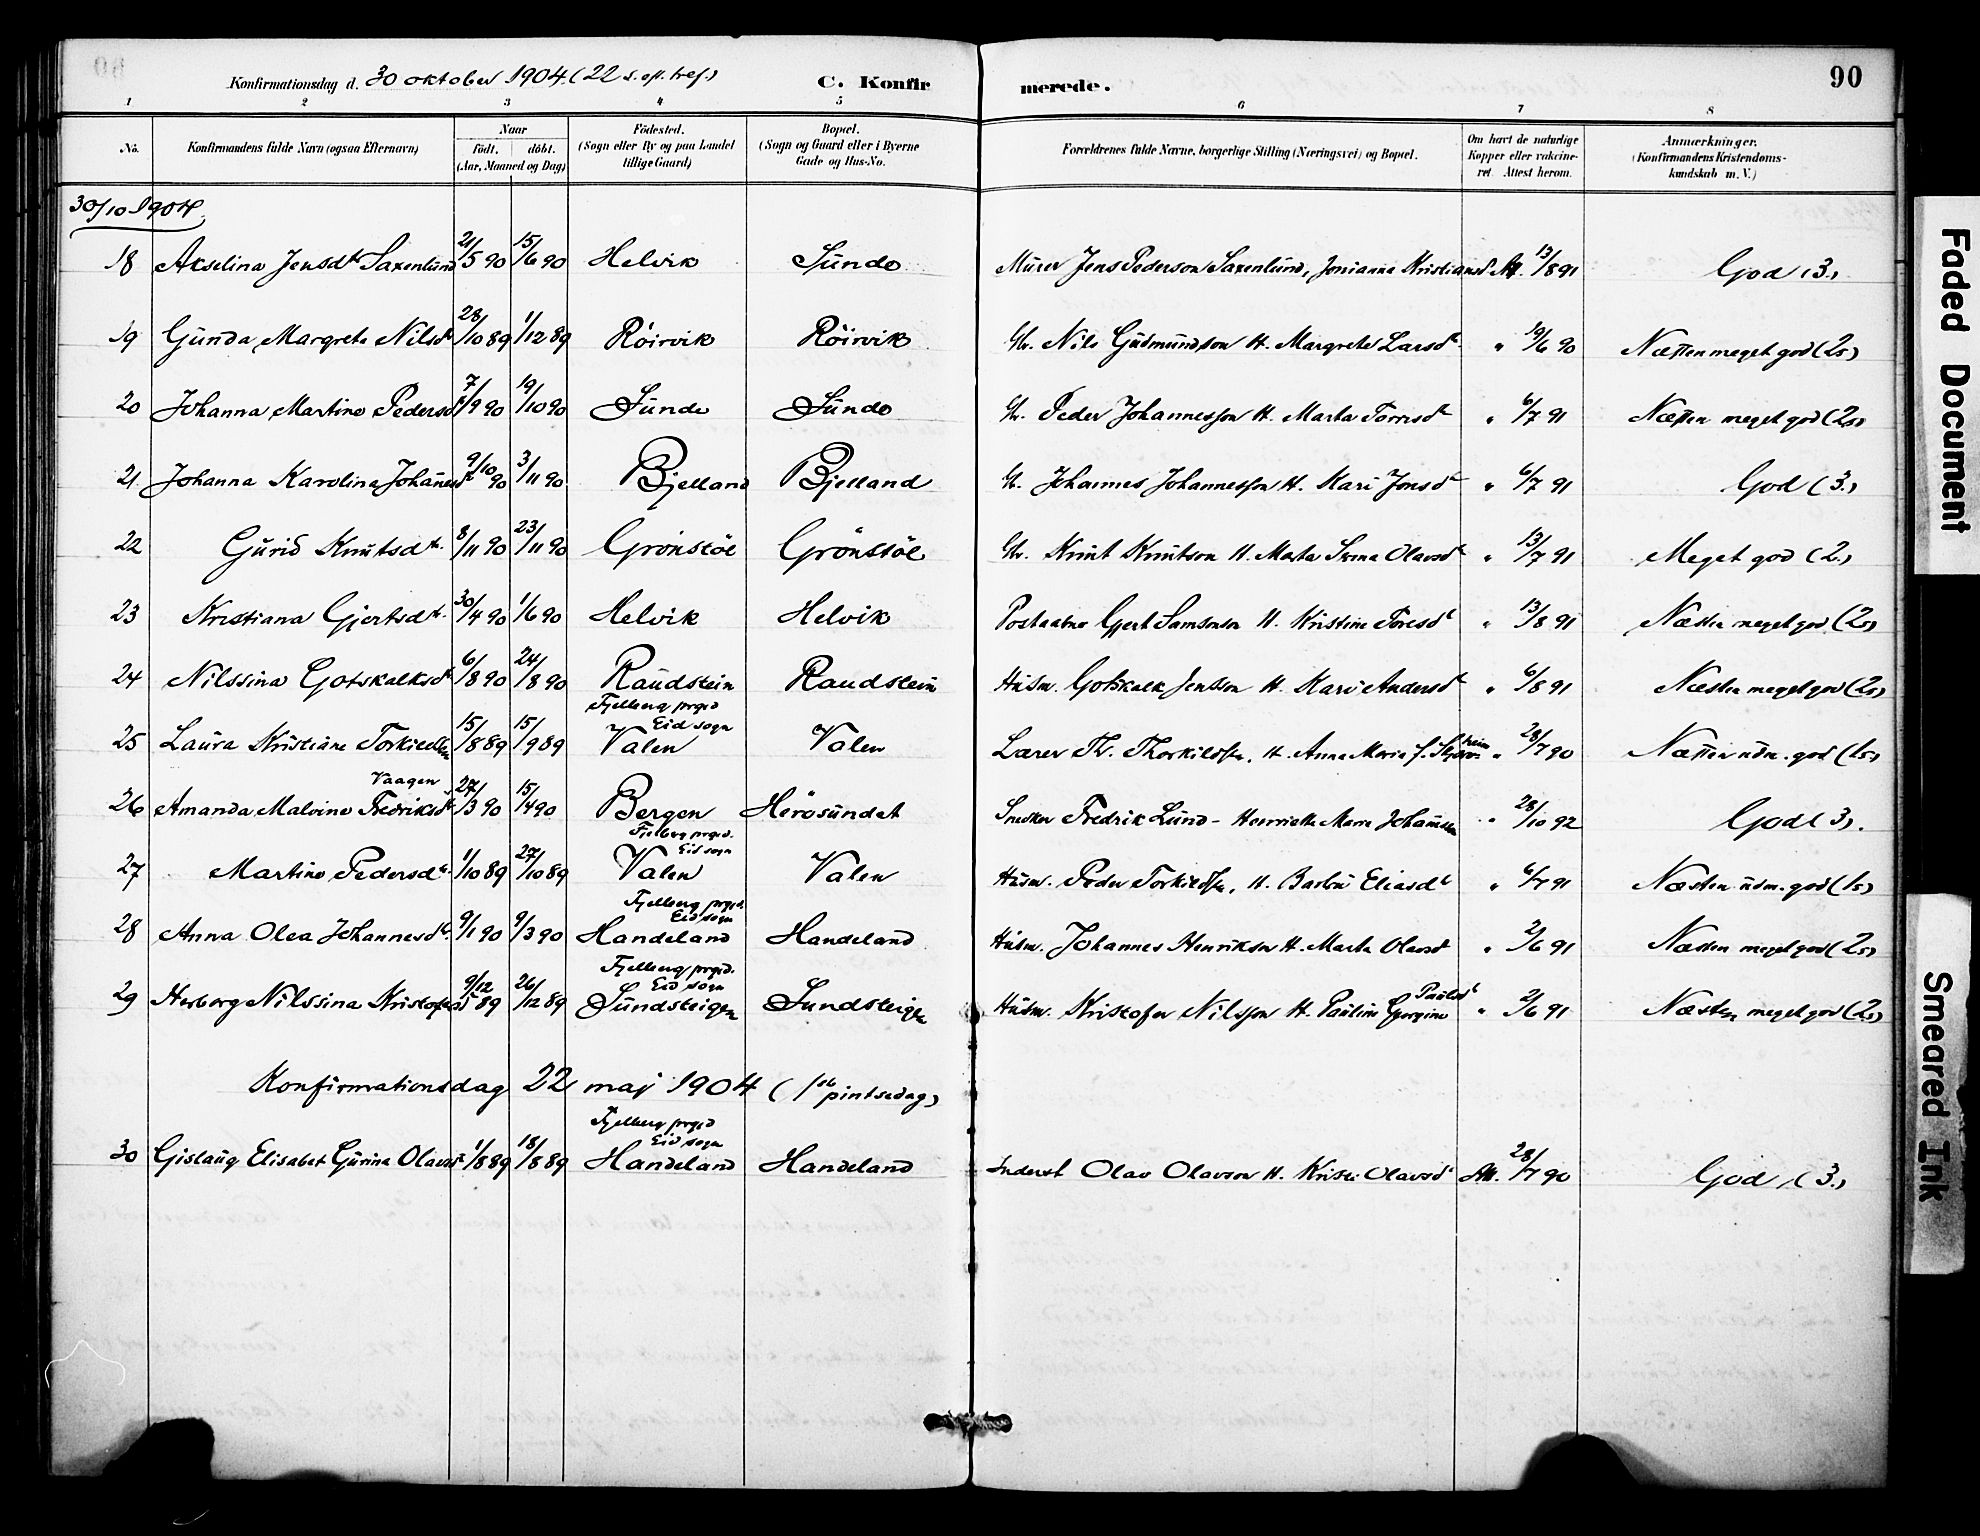 Konfirmationsdag d. 30 oktober 1904. (22 s. eft. tref.) C. Konfirmerede. 90
1 2 3 4 5 6 7 8
No. Konfirmandens fulde Navn (ogsaa Efternavn) Naar født. døbt. (Aar, Maaned og Dag) Födested. (Sogn eller By og paa Landet tillige Gaard) Bopæl. (Sogn og Gaard eller i Byerne Gade og Hus-No. Forældrenes fulde Navne, borgerlige Stilling (Næringsvei) og Bopæl. Om havt de naturlige Kopper eller vakcineret. Attest herom. Anmærkninger. (Konfirmandens Kristendomskundskab m. V.)
30/10 1904
18 Akselina Jensdtr Saxenlund 21/5 90 15/6 90 Helvik Sunde Murer Jens Pederson Saxenlund, Jonianna Kristiansd. Att. 13/8 91 God (3.)
19 Gunda Margrete Nilsdtr 28/10 89 1/12 89 Röirvik Röirvik Gbr. Nils Gudmundson H. Margrete Larsdt " 19/6 90 Næsten meget god (2s)
20 Johanna Martine Pedersdt 7/9 90 19/10 90 Sunde Sunde Gbr. Peder Johannesson H. Marta Torrisdt " 6/7 91 Næsten meget god (2s)
21 Johanna Karolina Johannesdt 9/10 90 3/11 90 Bjelland Bjelland Gbr. Johannes Johannesson H. Kari Jonsdt " 6/7 91 God (3.)
22 Gurid Knutsdtr. 8/11 90 23/11 90 Grönstöl Grönstöl Gbr. Knut Knutson H. Marta Olavsdt " 13/7 91 Meget god (2.)
23 Kristiana Gjertsdtr. 30/4 90 1/6 90 Helvik Helvik Gjert Samsonson H. Kristine Toresdt " 13/8 91 Næsten meget god (2s)
24 Nilssina Gotskalksdt 6/8 90 24/8 90 Raudstein Raudstein Husm. Gotskalk Jensson H. Kari Andersdt " 6/8 91 Næsten meget god (2s)
Fjelberg prgjd
Eid sogn
25 Laura Kristiane Torkildsen 15/8 89 15/9 89 Valen Valen Lærer Th. Thorkildsen, H. Anna Maria f. " 28/7 90 Næsten udm. god (1s)
Vaagen
26 Amanda Malvine Fredriksdt 27/3 90 15/4 90 Bergen Herösundet Snedker Fredrik Lund - Henriette Marie Johannesen " 28/10 92 God (3).
Fjelberg prgjd.
Eid sogn
27 Martine Pedersdt. 1/10 89 27/10 89 Valen Valen Husm. Peder Torkildsen, H. Barbru Eliasdt " 6/7 91 Næsten udm. god (1s)
Fjelberg prgjd.
Eid sogn
28 Anna Olea Johannesdt. 9/1 90 9/3 90 Handeland Handeland Husm. Johannes Henrikson H. Marta Olavsd " 2/6 91 Næsten meget god (2s)
Fjelberg prgjd.
Eid sogn
29 Herborg Nilssina Kristofersdt 9/12 89 26/12 89 Sundsteigen Sundsteigen Husm. Kristofer Nilsson H. Pauline Georgine Paulsdt " 2/6 91 Næsten meget god (2s)
Konfirmationsdag 22 mai 1904 (1ste pintsedag)
Fjelberg prgjd
Eid sogn
30 Gislaug Elisabet Gurine Olavsdt 1/8 89 18/8 89 Handeland Handeland Inderst Olav Olavson H. Kristi Olavsdt Att. 28/7 90 God (3.)
Faded Document
Smeared Ink